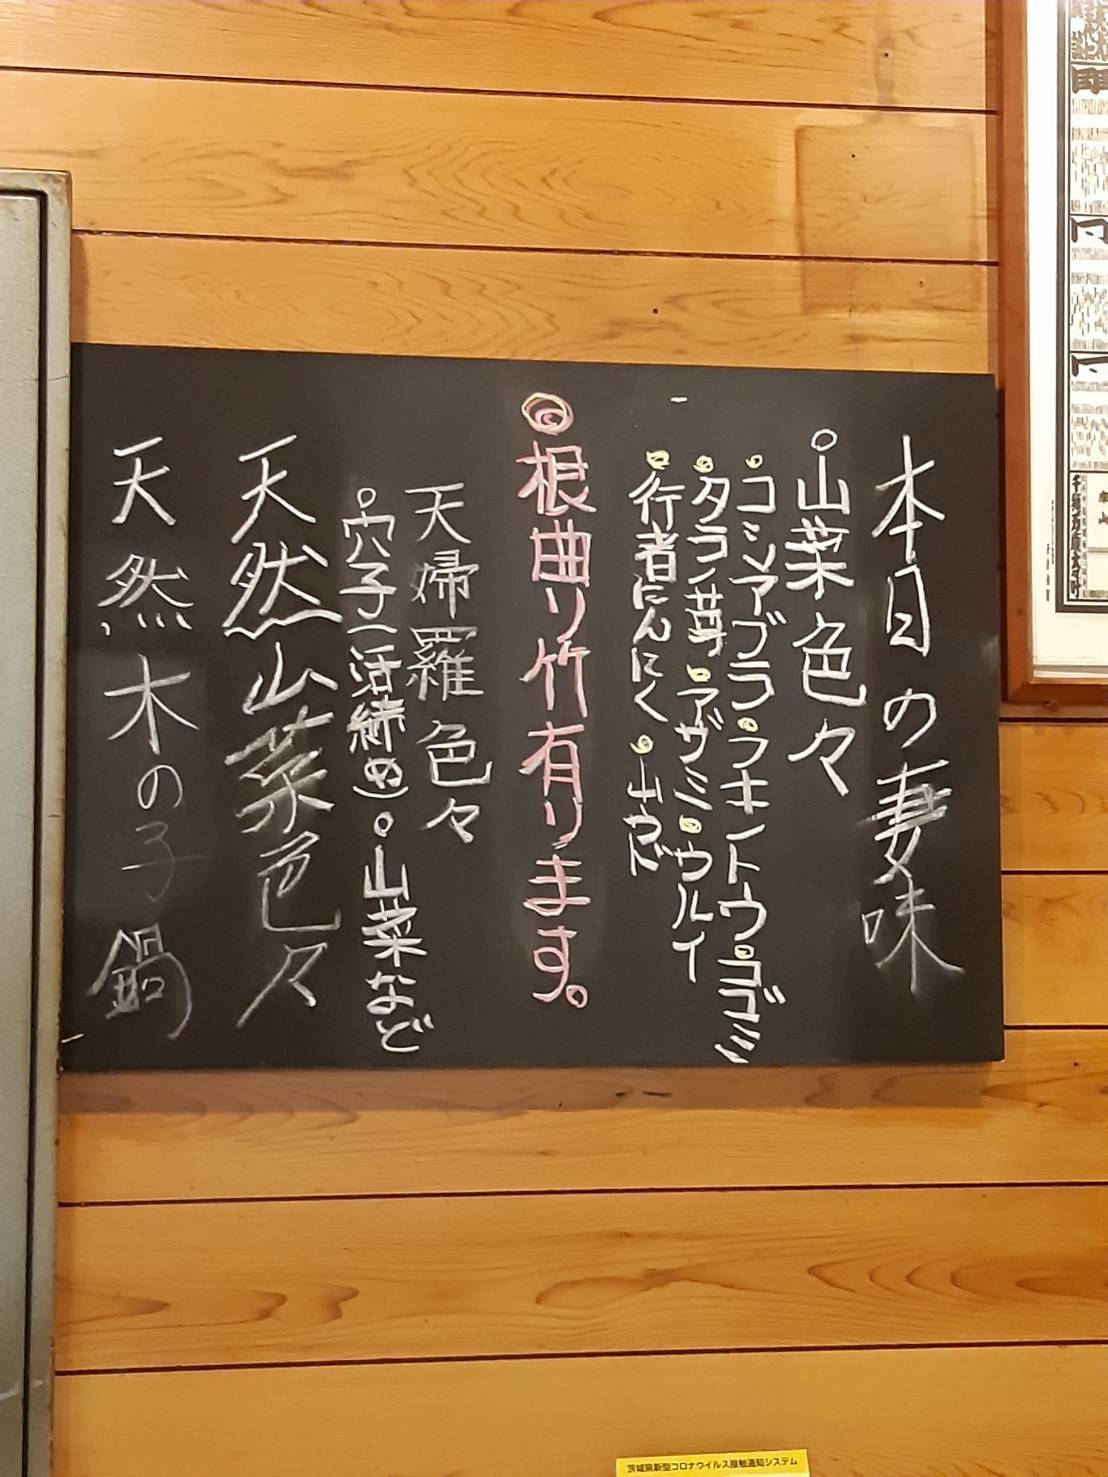 本日の妻味
○山菜色々
○コシアブラ○フキントウ○コゴミ
○タラン芽○アザミ○ウルイ
○行者にんにく○山ウド
◎根曲り竹有ります。
天婦羅色々
○穴子(活締め)○山菜など
天然山菜色々
天然木の子鍋
茨城県新型コロナウイルス接触通知システム